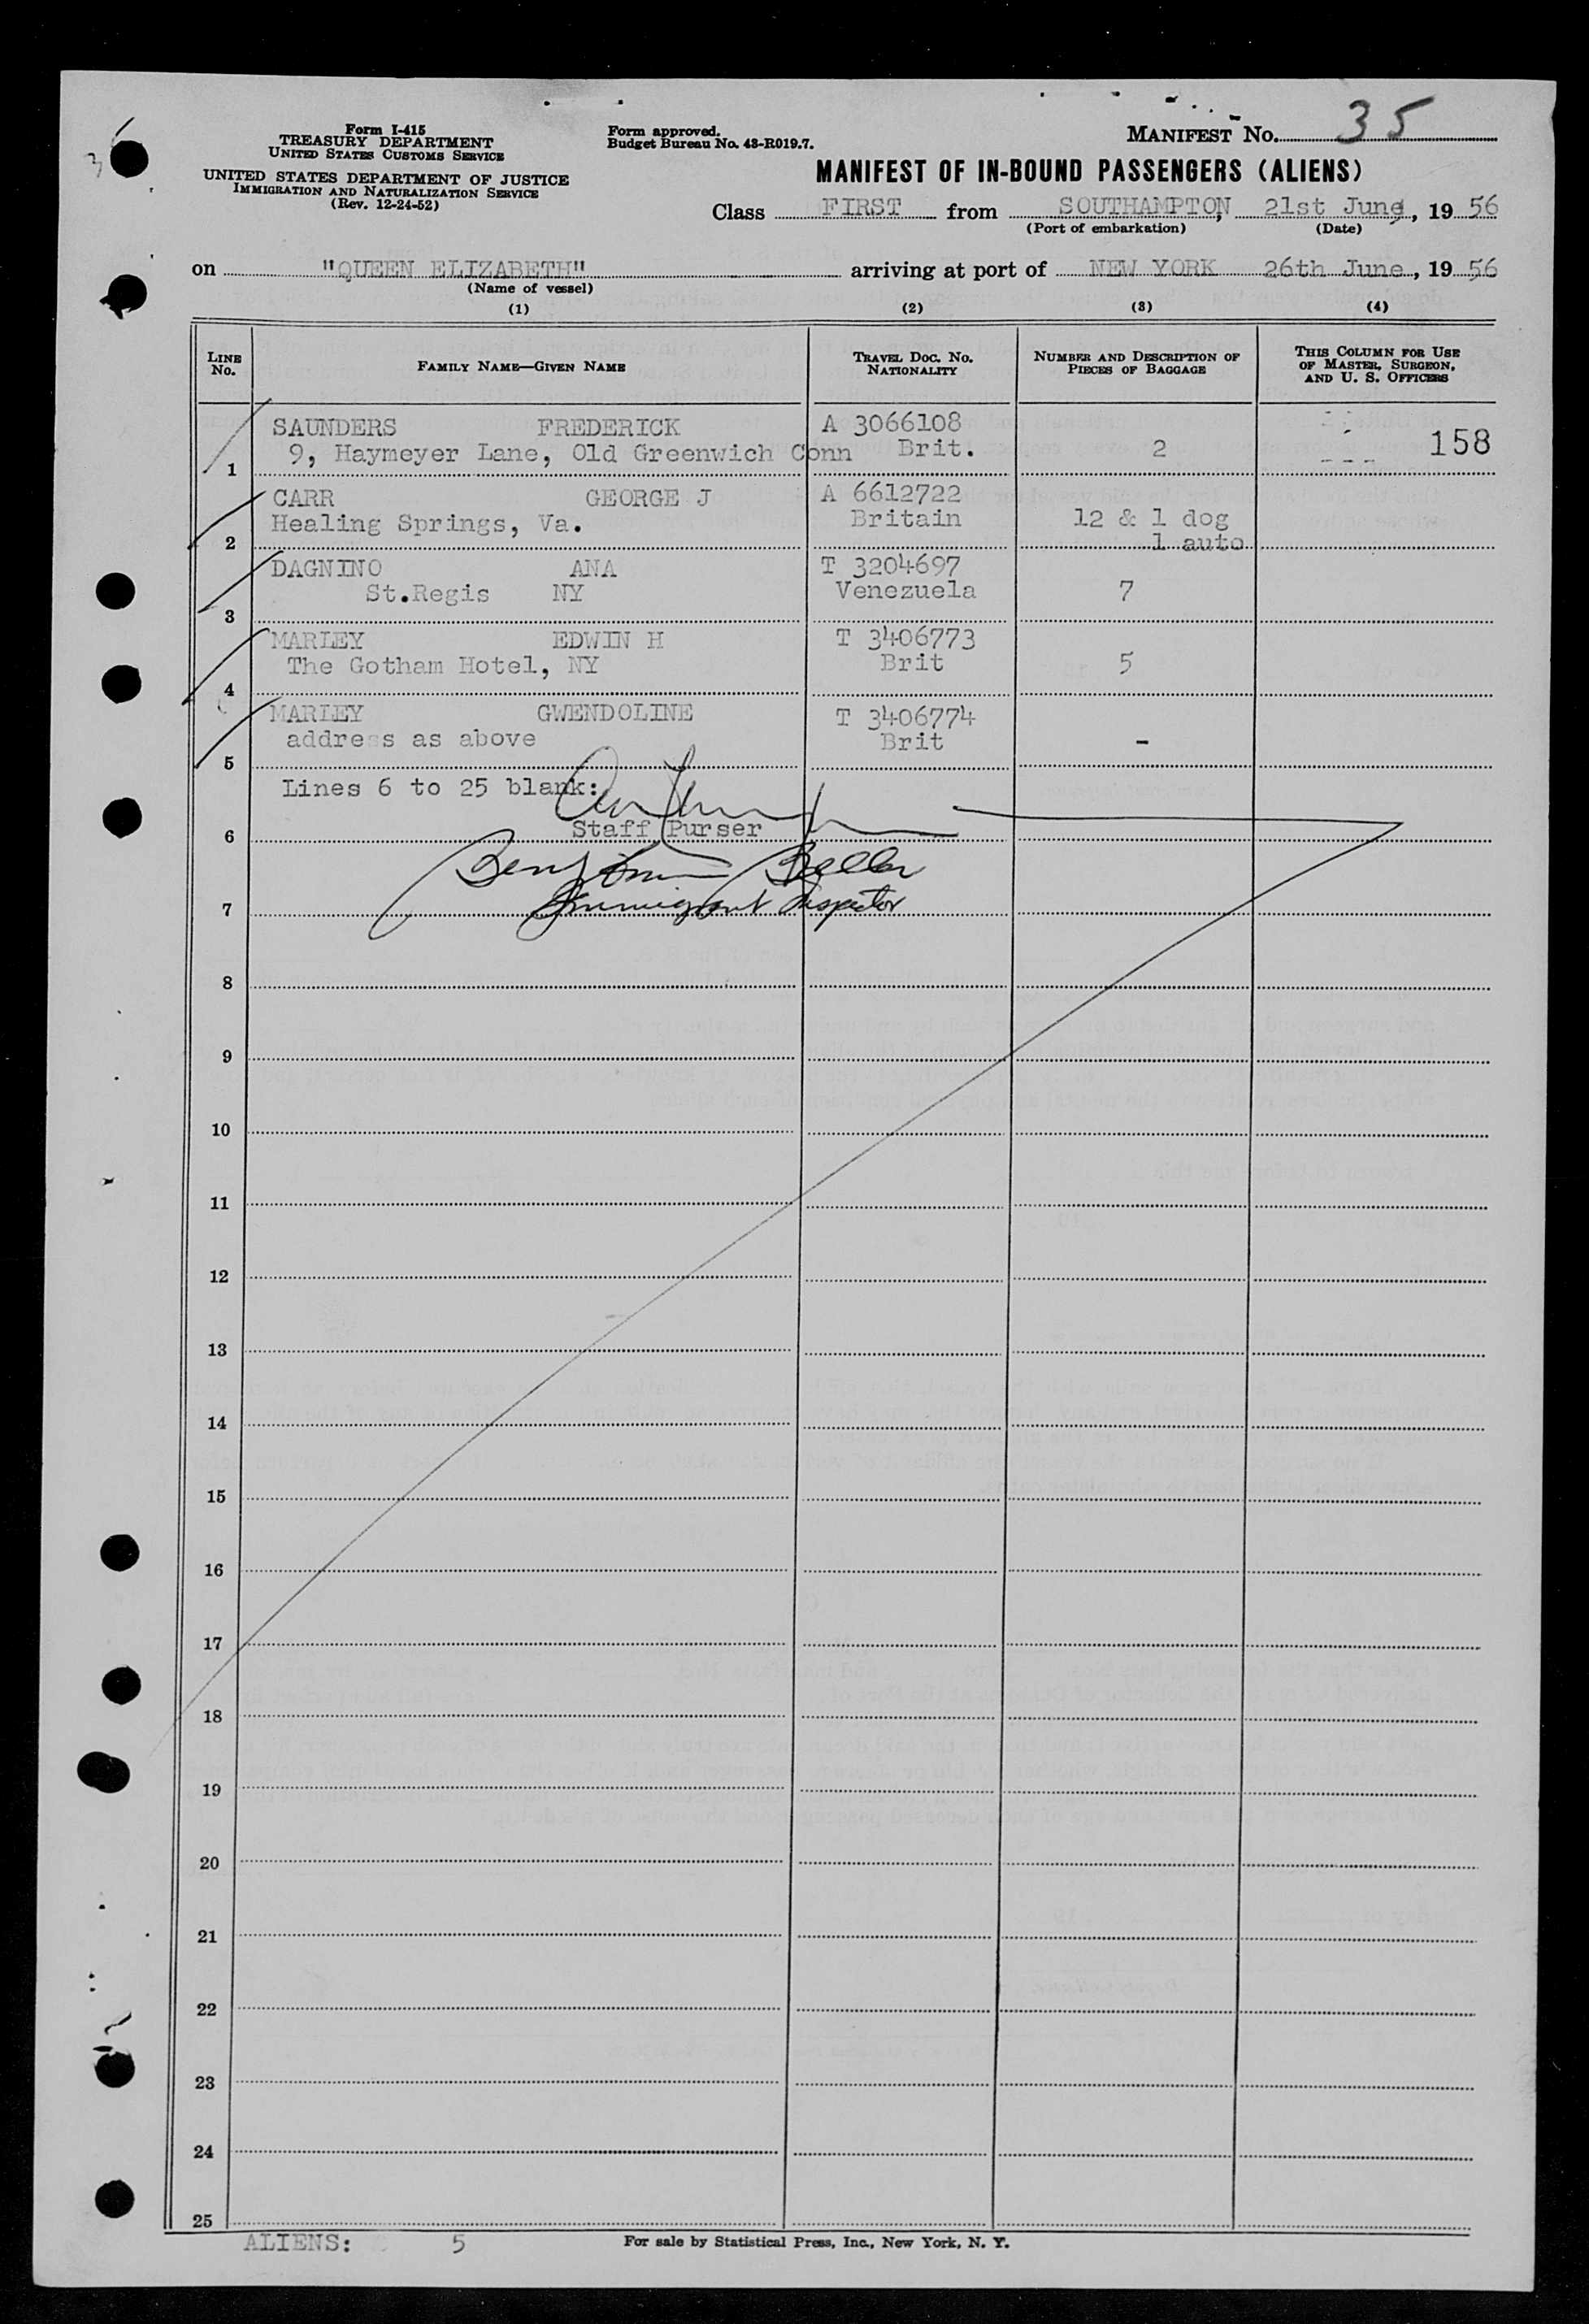 Form I-415
TREASURY DEPARTMENT
UNITED STATES CUSTOMS SERVICE
UNITED STATES DEPARTMENT OF JUSTICE
IMMIGRATION AND NATURALIZATION SERVICE
(Rev. 12-24-52)
Form approved.
Budget Bureau No. 43-R019.7.
MANIFEST No. 35
MANIFEST OF IN-BOUND PASSENGERS (ALIENS)
Class FIRST from SOUTHAMPTON, 21st June, 19 56
(Port of embarkation) (Date)
on "QUEEN ELIZABETH" arriving at port of NEW YORK 26th June, 19 56
(Name of vessel)
(1) (2) (3) (4)
LINE No. FAMILY NAME—GIVEN NAME TRAVEL DOC. No. NATIONALITY NUMBER AND DESCRIPTION OF PIECES OF BAGGAGE THIS COLUMN FOR USE OF MASTER, SURGEON, AND U. S. OFFICERS
SAUNDERS FREDERICK A 3066108
1 9, Haymeyer Lane, Old Greenwich Conn Brit. 2 158
CARR GEORGE J A 6612722
Healing Springs, Va. Britain 12 & 1 dog
2 1 auto
DAGNINO ANA T 3204697
St.Regis NY Venezuela 7
3
MARLEY EDWIN H T 3406773
The Gotham Hotel, NY Brit 5
4
MARLEY GWENDOLINE T 3406774
address as above Brit -
5
Lines 6 to 25 blank:
6 Staff Purser
Benjamin Beller
7 Immigrant Inspector
8
9
10
11
12
13
14
15
16
17
18
19
20
21
22
23
24
25
ALIENS: 5 For sale by Statistical Press, Inc., New York, N. Y.